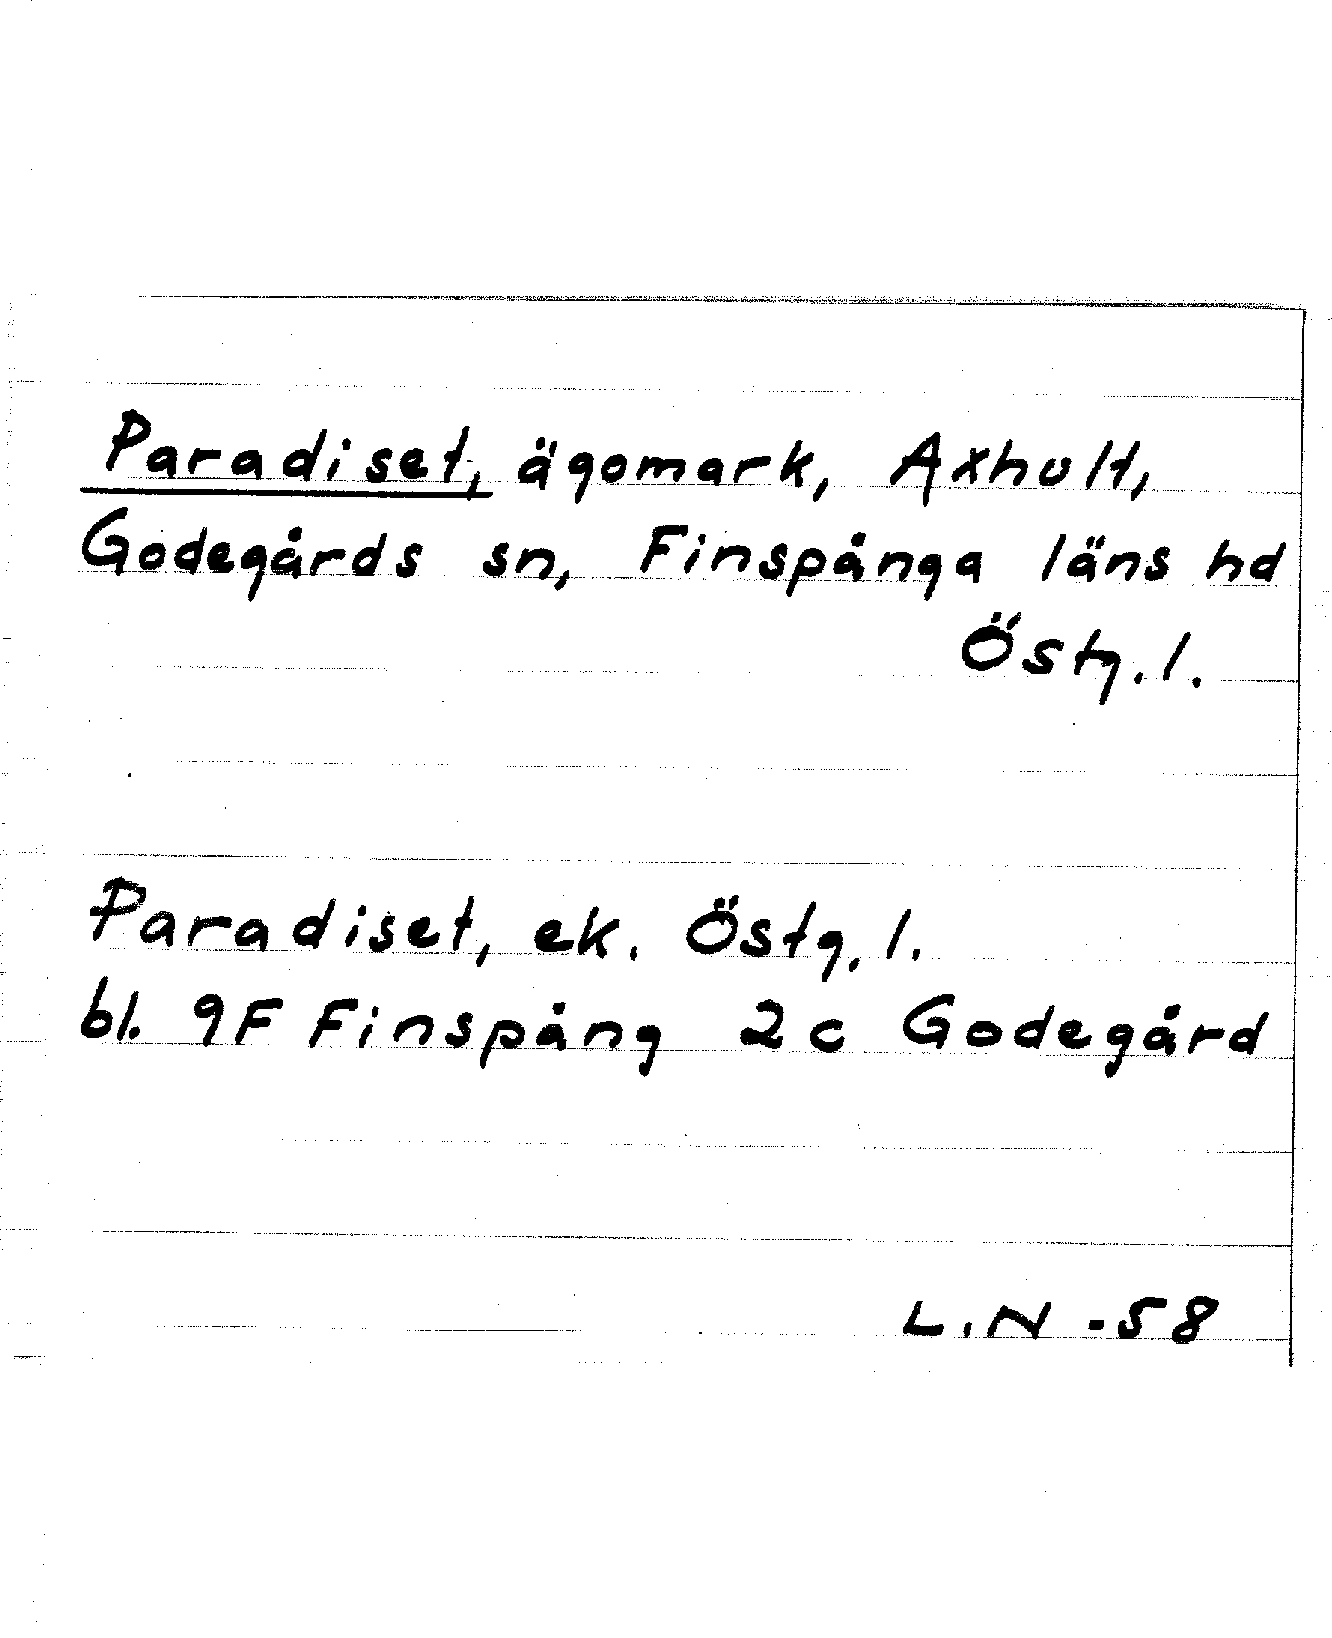 Paradiset, ägomark, Axhult,
Godegårds sn, Finspånga läns hd
Östg. l.
Paradiset, ek. Östg. l.
bl. 9F Finspång 2c Godegård
L.N -58